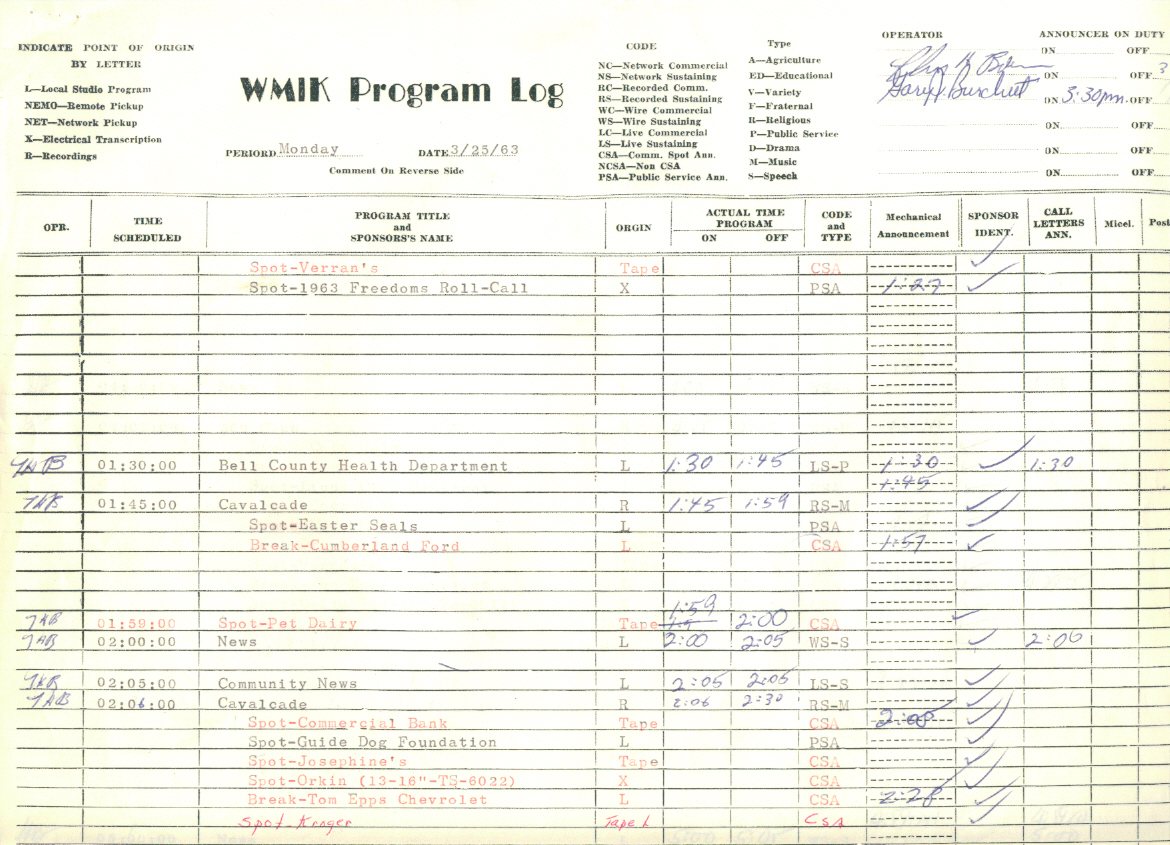 INDICATE POINT OF ORIGIN
BY LETTER
L—Local Studio Program
NEMO—Remote Pickup
NET—Network Pickup
X—Electrical Transcription
R—Recordings
WMIK Program Log
PERIORD Monday DATE 3/25/63
Comment On Reverse Side
CODE
NC—Network Commercial
NS—Network Sustaining
RC—Recorded Comm.
RS—Recorded Sustaining
WC—Wire Commercial
WS—Wire Sustaining
LC—Live Commercial
LS—Live Sustaining
CSA—Comm. Spot Ann.
NCSA—Non CSA
PSA—Public Service Ann.
Type
A—Agriculture
ED—Educational
V—Variety
F—Fraternal
R—Religious
P—Public Service
D—Drama
M—Music
S—Speech
OPERATOR ANNOUNCER ON DUTY
ON OFF
ON OFF 3
ON 3:30pm. OFF
ON OFF
ON OFF
ON OFF
OPR. TIME SCHEDULED PROGRAM TITLE and SPONSORS'S NAME ORGIN ACTUAL TIME PROGRAM ON OFF CODE and TYPE Mechanical Announcement SPONSOR IDENT. CALL LETTERS ANN. Micel. Post
Spot-Verran's Tape CSA ✓
Spot-1963 Freedoms Roll-Call X PSA 1:27 ✓
01:30:00 Bell County Health Department L 1:30 1:45 LS-P 1:30 ✓ 1:30
1:45
01:45:00 Cavalcade R 1:45 1:59 RS-M ✓
Spot-Easter Seals L PSA ✓
Break-Cumberland Ford L CSA 1:57 ✓
1:59
01:59:00 Spot-Pet Dairy Tape 2:00 CSA ✓
02:00:00 News L 2:00 2:05 WS-S ✓ 2:00
02:05:00 Community News L 2:05 2:05 LS-S ✓
02:06:00 Cavalcade R 2:06 2:30 RS-M ✓
Spot-Commercial Bank Tape CSA ✓
Spot-Guide Dog Foundation L PSA ✓
Spot-Josephine's Tape CSA ✓
Spot-Orkin (13-16"-TS-6022) X CSA ✓
Break-Tom Epps Chevrolet L CSA 2:28 ✓
Spot-Kroger Tape L CSA ✓